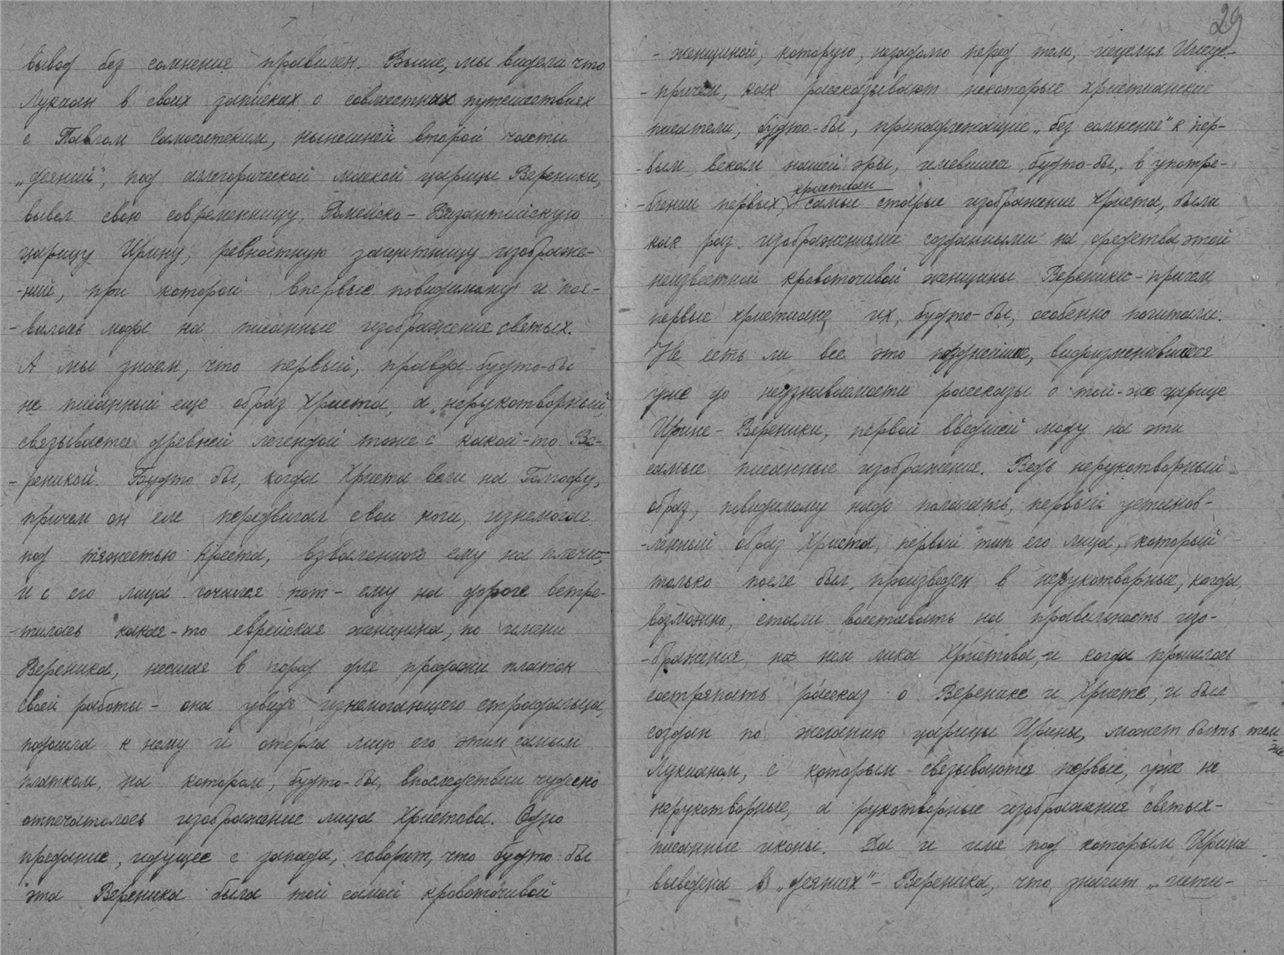 вывод без сомнения правилен. Выше, мы видели что
Лукиан в своих записках о совместных путешествиях
с Павлом Самосатским, нынешней второй части
„деяний", под аллегорической маской царицы Вереники,
вывел свою современницу, Ромейско-Византийскую
царицу Ирину, ревностную защитницу изображе-
-ний, при которой впервые повидимому и поя-
-вилась мода на писанные изображения святых.
А мы знаем, что первый, правда будто-бы
не писанный еще образ Христа, а „нерукотворный
связывается древней легендой тоже с какой-то Ве-
-реникой. Будто бы, когда Христа вели на Голгофу,
причем он еле передвигал свои ноги, изнемогая
под тяжестью креста, взваленного ему на плечи,
и с его лица сочился пот - ему на дороге встре-
-тилась какая-то еврейская женщина, по имени
Вереника, несшая в город для продажи платок
своей работы - она увидя изнемогающего страдальца,
подошла к нему и отерла лицо его этим самым
платком, на котором, будто-бы, впоследствии чудесно
отпечаталось изображение лица Христова. Одно
предание, идущее с запада, говорит, что будто бы
эта Вереника была той самой кровоточивой
29
- женщиной, которую, незадолго перед тем, исцелил Иисус
- причем, как рассказывают некоторые христианские
писатели, будто-бы, принадлежащие „без сомнения" к пер-
-вым векам нашей эры, имевшиеся, будто-бы, в употре-
христиан
-блении первых, самые старые изображения Христа, были
как раз изображениями созданными на средства этой
неизвестной кровоточивой женщины Вереники - причем
первые христиане их, будто-бы, особенно почитали.
Не есть ли все это позднейшие, видоизменившиеся
уже до неузнаваемости рассказы о той-же царице
Ирине-Веренике, первой введшей моду на эти
самые писанные изображения. Ведь нерукотворный
образ, повидимому надо полагать, первый установ-
-ленный образ Христа, первый тип его лица, который
только после был, произведен в нерукотворные, когда,
возможно, стали восставать на правильность изо-
-бражения, на нем лика Христова, и когда пришлось
состряпать рассказ о Веренике и Христе, и был
создан по желанию царицы Ирины, может быть тем
же
Лукианом, с которым связываются первые, уже не
нерукотворные, а рукотворные изображения святых -
писанные иконы. Да и имя под которым Ирина
выведена в „деяниях" - Вереника, что значит „исти-